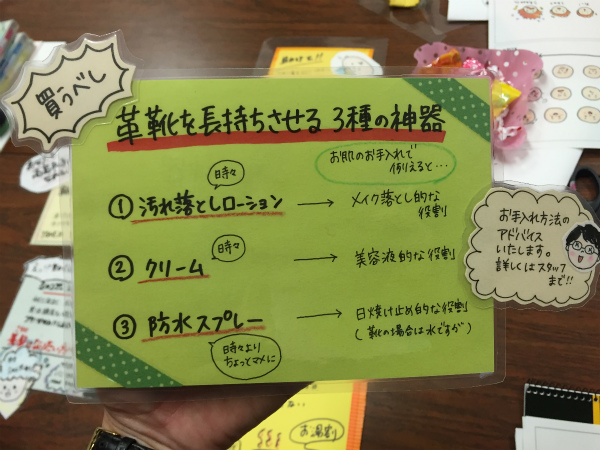 買うべし
革靴を長持ちさせる3種の神器
お肌のお手入れで
例えると…
時々
① 汚れ落としローション → メイク落とし的な
役割
時々
② クリーム → 美容液的な役割
③ 防水スプレー → 日焼け止め的な役割
(靴の場合は水ですが)
時々より
ちょっとマメに
お手入れ方法の
アドバイス
いたします。
詳しくはスタッフ
まで!!
お湯割